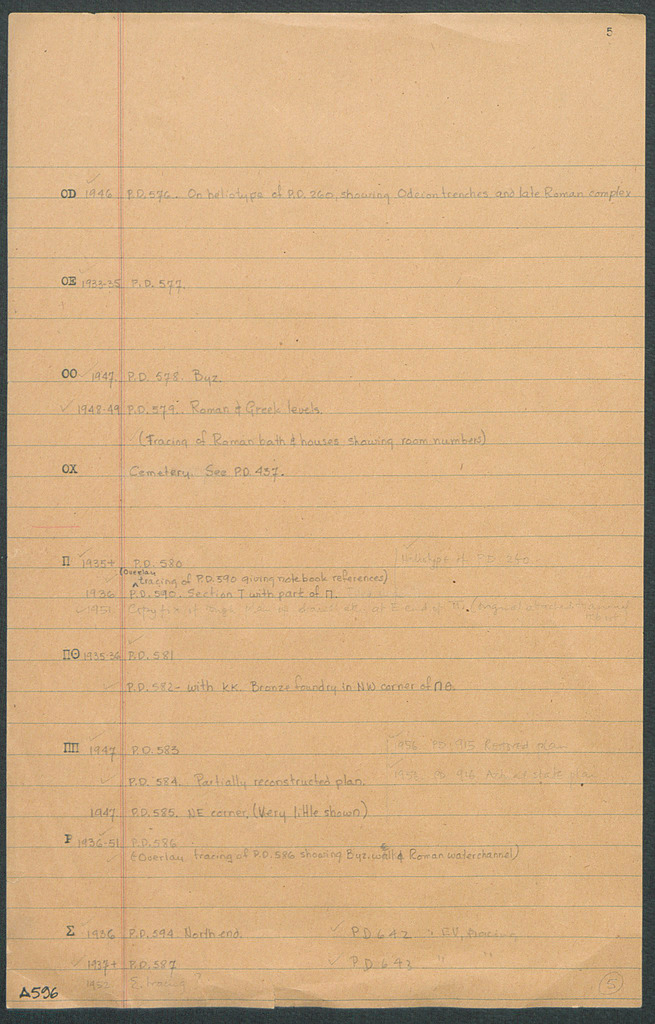 5
OD 1946 P.D. 576. On heliotype of P.D. 260, showing Odeion trenches and late Roman complex
OE 1933-35 P.D. 577.
OO 1947. P.D. 578. Byz.
✓ 1948-49 P.D. 579. Roman & Greek levels.
(Tracing of Roman bath & houses showing room numbers)
OX Cemetery. See P.D. 437.
Π 1935+ P.D. 580 Heliotype of PD 260
(Overlay tracing of P.D. 590 giving notebook references)
1936 P.D. 590. Section T with part of Π.
✓ 1951
ΠΘ 1935-36 P.D. 581
✓ P.D. 582 - with KK. Bronze foundry in NW corner of ΠΘ.
ΠΠ 1947 P.D. 583 1958 PD 915 Restored plan
✓ P.D. 584. Partially reconstructed plan. 1958 PD 916 Actual state plan
1947 P.D. 585. NE corner, (Very little shown)
P 1936-51 P.D. 586
(Overlay tracing of P.D. 586 showing Byz. wall & Roman waterchannel)
Σ 1936 P.D. 594 North end. ✓ PD 642 " EV,
✓ 1937+ P.D. 587 ✓ PD 643 " "
Σ tracing ?
Δ596
5